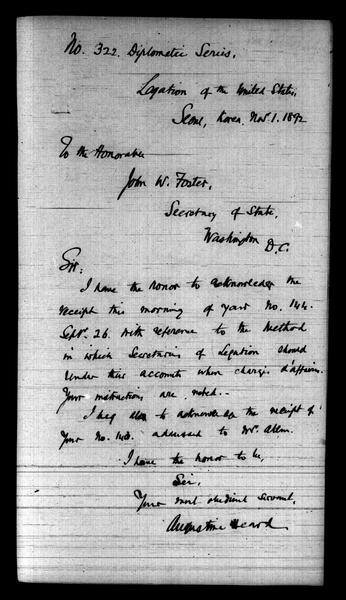 No. 322. Diplomatic Series.
Legation of the United States,
Seoul, Korea. Nov. 1. 1892
To the Honorable
John W. Foster,
Secretary of State,
Washington
D.C.
Sir:
I have the honor to acknowledge the
receipt this morning of your No. 144.
Sept. 26. with reference to the method
in which Secretaries of Legation should
render their accounts when chargés d'affaires.
Your instructions are noted.
I beg also to acknowledge the receipt of
your No. addressed to Mr. Allen.
I have the honor to be,
Sir,
Your most obedient servant,
Augustine Heard